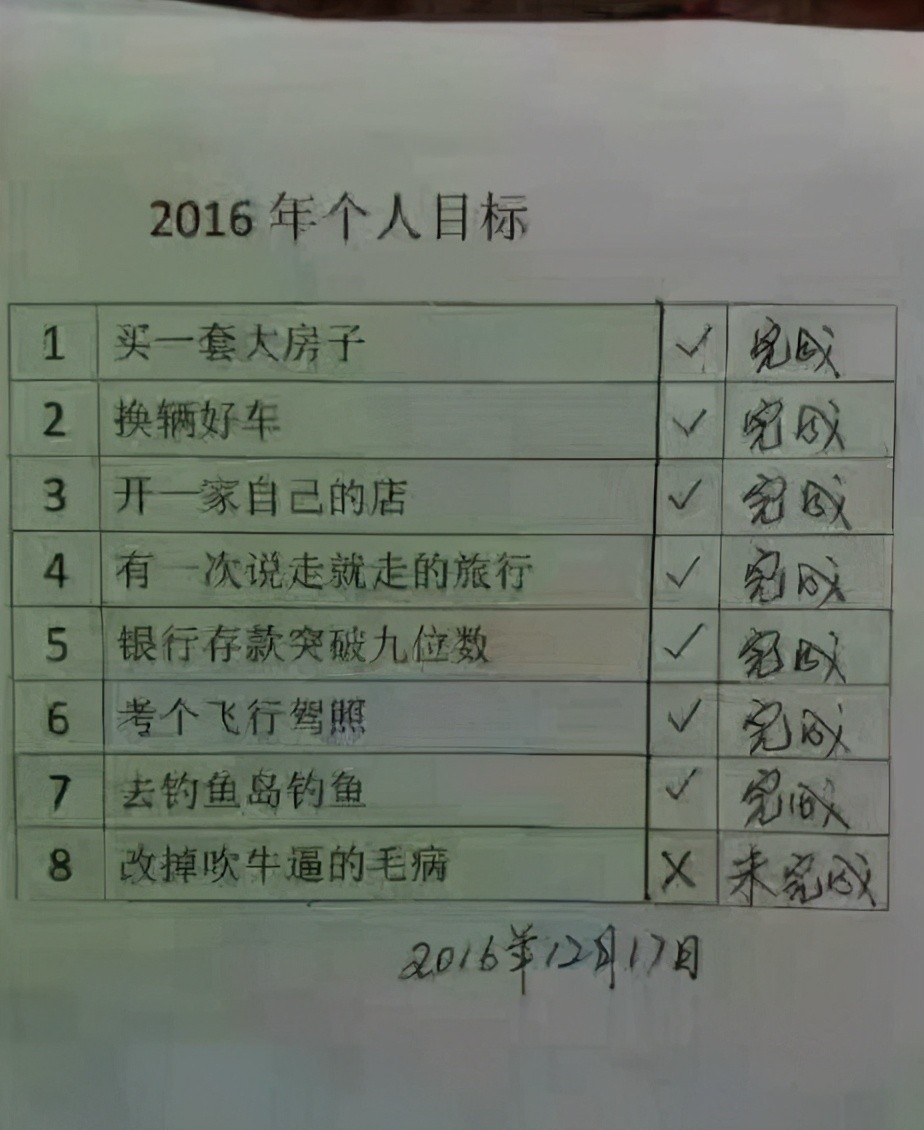 2016 年个人目标
1 买一套大房子 ✓ 完成
2 换辆好车 ✓ 完成
3 开一家自己的店 ✓ 完成
4 有一次说走就走的旅行 ✓ 完成
5 银行存款突破九位数 ✓ 完成
6 考个飞行驾照 ✓ 完成
7 去钓鱼岛钓鱼 ✓ 完成
8 改掉吹牛逼的毛病 X 未完成
2016年12月17日